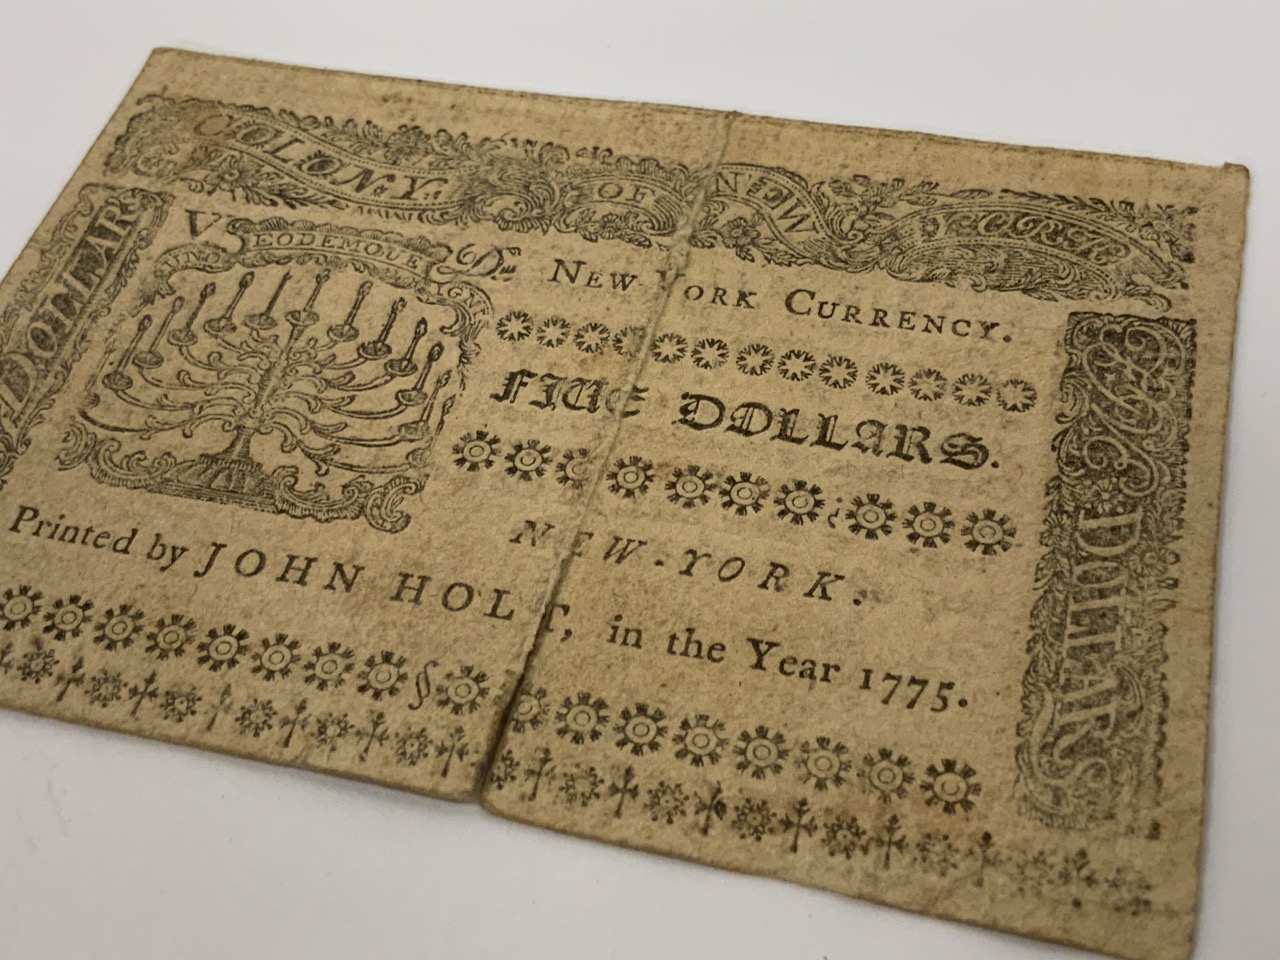 COLONY OF NEW YORK
DOLLARS
V
UNO EODEMQUE IGNI
NEW YORK CURRENCY.
FIVE DOLLARS.
NEW-YORK.
Printed by JOHN HOLT, in the Year 1775.
DOLLARS